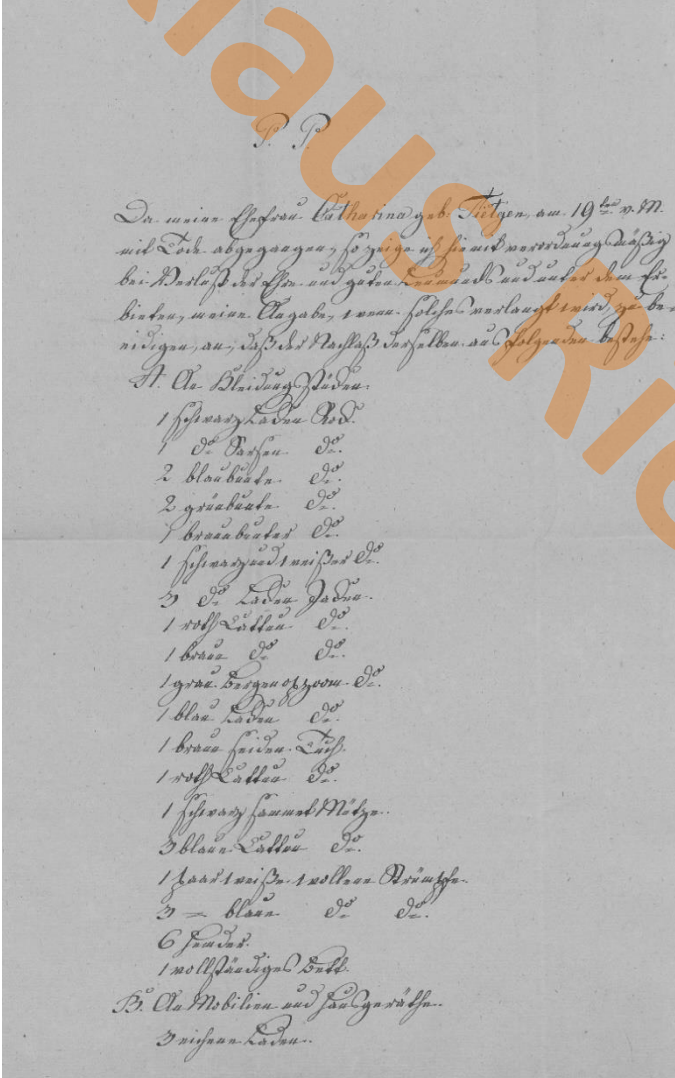 P. P.
Da meine Ehefrau Catharina geb. Tietgen, am 19ten v. M.
mit Tode abgegangen, so zeige ich hiemit verordnungsmäßig
bei Verlust der Ehre und guten Leumunds und unter dem Er-
bieten, meine Angabe, wenn solches verlangt wird, zu be-
eidigen, an, daß der Nachlaß derselben aus folgenden bestehe:
A. An Kleidungsstücken.
1 schwarz Laden Rock.
1 do Sarsen do.
2 blaubunte do.
2 grünbunte do.
1 braunbunter do.
1 schwarz und weißer do.
3 do Laken Jacken.
1 roth Cattun do.
1 braun do do.
1 grau Bergen op zoom do.
1 blau Laken do.
1 braun seiden Tuch.
1 roth Cattun do.
1 schwarz Sammet Mütze.
3 blaue Cattun do.
1 paar weiße wollene Strümpfe.
3 = blaue do do.
6 Hemder.
1 vollständiges Bett.
B. An Mobilien und Hausgeräthe.
3 eichene Laden.
Klaus Ri